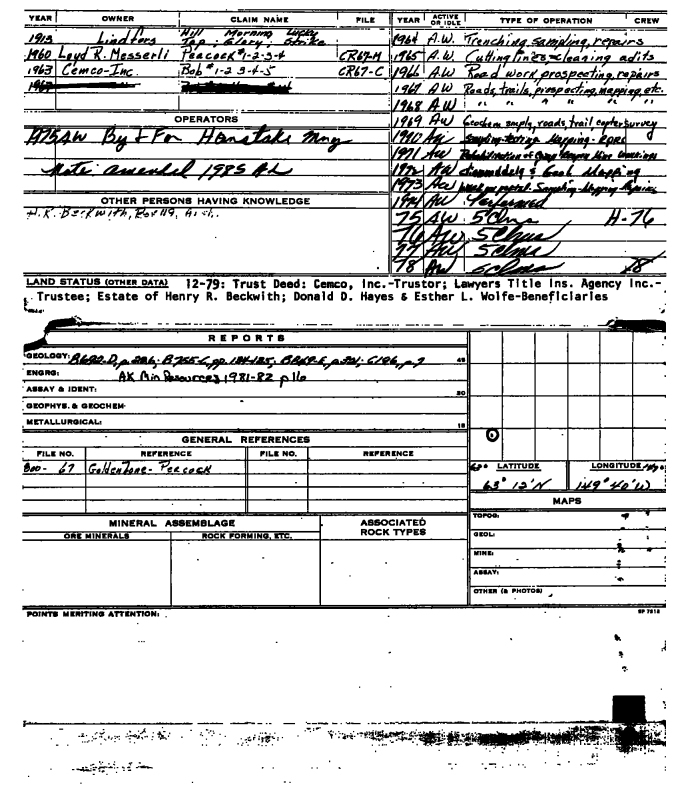 YEAR OWNER CLAIM NAME FILE YEAR ACTIVE OR IDLE TYPE OF OPERATION CREW
1913 Lindfors Hill Top; Morning Glory; Lucky Strike
1960 Loyd R. Messerli Peacock #1-2-3-4 CR67-M
1963 Cemco-Inc. Bob #1-2 3-4-5 CR67-C
1964 A.W. Trenching, sampling, repairs
1965 A.W. Cutting lines, cleaning adits
1966 A.W. Road work, prospecting, repairs
1967 A.W. Roads, trails, prospecting, mapping, etc.
1968 AW " " " " "
1969 AW Geochem smplg, roads, trail, copter survey
1970 AW Mapping -
1971 AW
1972 AW & Geol Mapping
1973 AW Sampling-Mapping-Repairs
1974 AW Performed
75 AW 5 Clms H-76
76 AW 5 Clms
77 AW 5 clms
78 AW 5 clms
OPERATORS
A75AW By & For Homstake Mng
Note: amended 1985 AL
OTHER PERSONS HAVING KNOWLEDGE
H. R. Beckwith, Box 119,
LAND STATUS (OTHER DATA) 12-79: Trust Deed: Cemco, Inc.-Trustor; Lawyers Title Ins. Agency Inc.-
Trustee; Estate of Henry R. Beckwith; Donald D. Hayes & Esther L. Wolfe-Beneficiaries
REPORTS
GEOLOGY: B692-D, p. 226; B755-C, pp. 124-125; p. 321; C196, p. 7 45
ENGRG: AK Min Resources 1981-82 p 16
ASSAY & IDENT: 30
GEOPHYS. & GEOCHEM-
METALLURGICAL: 15
GENERAL REFERENCES
FILE NO. REFERENCE FILE NO. REFERENCE
800- 67 Golden Zone- Peacock
LATITUDE LONGITUDE
63° 12'N 149° 40'W
MAPS
TOPOG:
GEOL:
MINE:
ASSAY:
OTHER (& PHOTOS)
MINERAL ASSEMBLAGE ASSOCIATED ROCK TYPES
ORE MINERALS ROCK FORMING, ETC.
POINTS MERITING ATTENTION: SP 7212